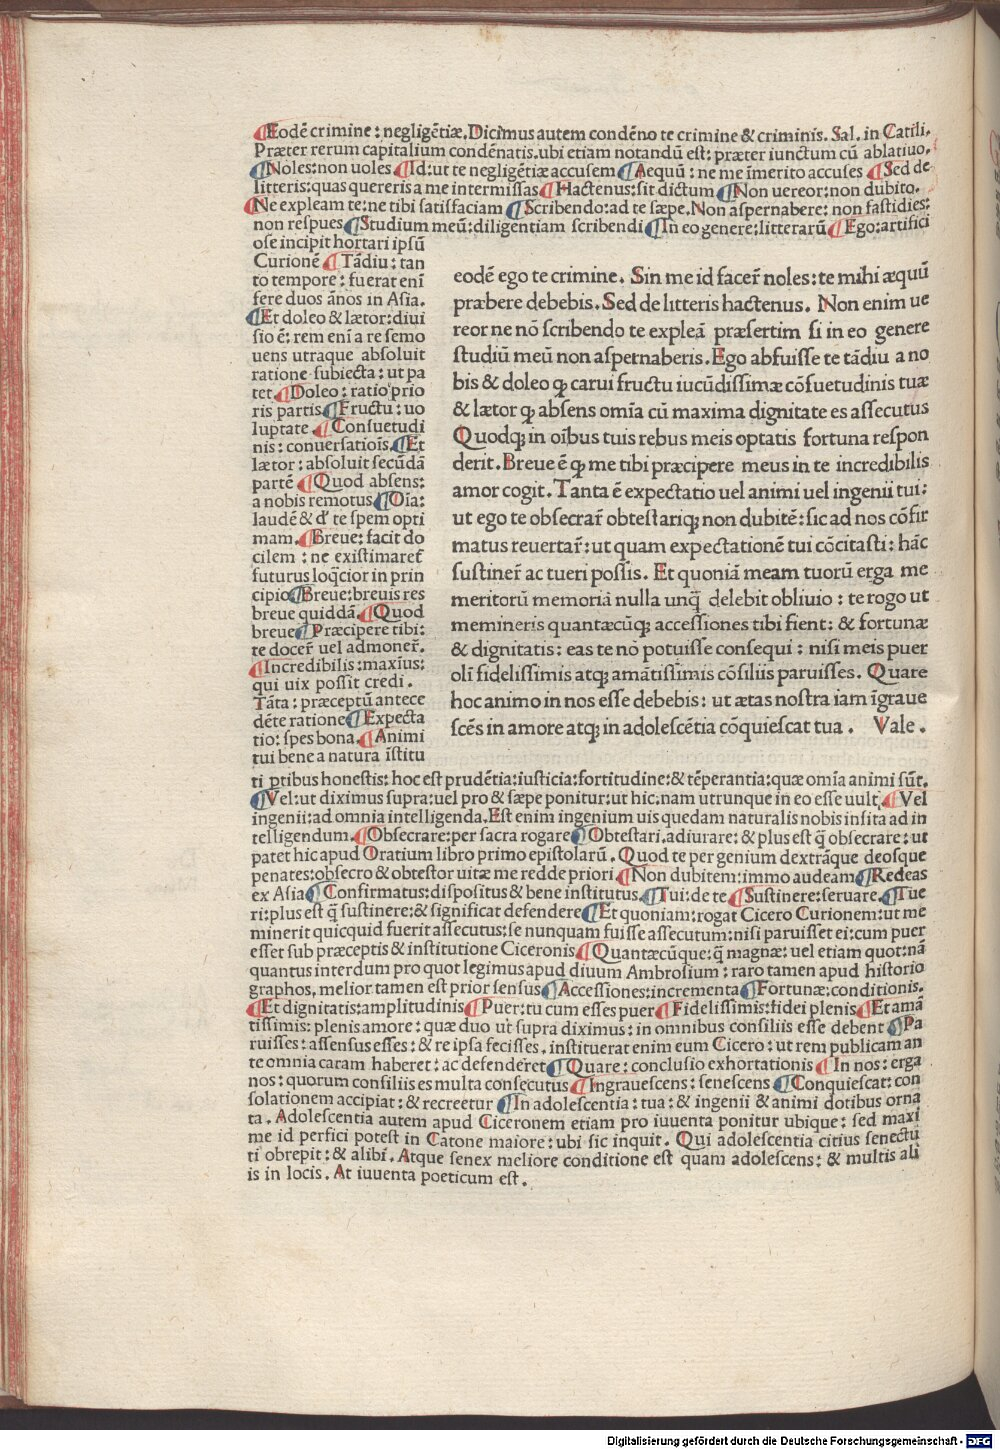 ¶Eodē crimine: negligētiæ. Dicimus autem condēno te crimine & criminis. Sal. in Catili.
Præter rerum capitalium condēnatis. ubi etiam notandū est: præter iunctum cū ablatiuo.
¶Noles: non uoles ¶Id: ut te negligētiæ accusem ¶Aequū: ne me īmerito accuses ¶Sed de
litteris: quas quereris a me intermissas ¶Hactenus: sit dictum ¶Non uereor: non dubito.
¶Ne expleam te: ne tibi satisfaciam ¶Scribendo: ad te sæpe. Non aspernabere: non fastidies:
non respues ¶Studium meū: diligentiam scribendi ¶In eo genere: litterarū ¶Ego: artifici
ose incipit hortari ipsū
Curionē ¶Tādiu: tan
to tempore: fuerat enī
fere duos ānos in Asia.
¶Et doleo & lætor: diui
sio ē: rem enī a re semo
uens utraque absoluit
ratione subiecta: ut pa
tet. ¶Doleo: ratio prio
ris partis ¶Fructu: uo
luptate ¶Consuetudi
nis: conuersatiois. ¶Et
lætor: absoluit secūdā
partē ¶Quod absens:
a nobis remotus ¶Oīa:
laudē & d' te spem opti
mam. ¶Breue: facit do
cilem: ne existimaret
futurus loq̄cior in prin
cipio ¶Breue: breuis res
breue quiddā. ¶Quod
breue ¶Præcipere tibi:
te docer̄ uel admoner̄.
¶Incredibilis: maxīus:
qui uix possit credi.
Tāta: præceptū antece
dēte ratione ¶Expecta
tio: spes bona. ¶Animi
tui bene a natura īstitu
eodē ego te crimine. Sin me id facer̄ noles: te mihi æquū
præbere debebis. Sed de litteris hactenus. Non enim ue
reor ne nō scribendo te expleā præsertim si in eo genere
studiū meū non aspernaberis. Ego abfuisse te tādiu a no
bis & doleo ꝙ carui fructu iucūdissimæ cōsuetudinis tuæ
& lætor ꝙ absens omīa cū maxima dignitate es assecutus
Quodqꝫ in oībus tuis rebus meis optatis fortuna respon
derit. Breue ē ꝙ me tibi præcipere meus in te incredibilis
amor cogit. Tanta ē expectatio uel animi uel ingenii tui:
ut ego te obsecrar̄ obtestariqꝫ non dubitē: sic ad nos cōfir
matus reuertar̄: ut quam expectationē tui cōcitasti: hāc
sustiner̄ ac tueri possis. Et quoniā meam tuorū erga me
meritorū memoriā nulla unq̄ delebit obliuio: te rogo ut
memineris quantæcūqꝫ accessiones tibi fient: & fortunæ
& dignitatis: eas te nō potuisse consequi: nisi meis puer
olī fidelissimis atqꝫ amātissimis cōsiliis paruisses. Quare
hoc animo in nos esse debebis: ut ætas nostra iam īgraue
scēs in amore atqꝫ in adolescētia cōquiescat tua. Vale.
ti ꝑtibus honestis: hoc est prudētia: iusticia: fortitudine: & tēperantia: quæ omīa animi sūt.
¶Vel: ut diximus supra: uel pro & sæpe ponitur: ut hic. nam utrunque in eo esse uult ¶Vel
ingenii: ad omnia intelligenda. Est enim ingenium uis quedam naturalis nobis insita ad in
telligendum. ¶Obsecrare: per sacra rogare ¶Obtestari. adiurare: & plus est q̄ obsecrare: ut
patet hic apud Oratium libro primo epistolarū. Quod te per genium dextrāque deosque
penates: obsecro & obtestor uitæ me redde priori ¶Non dubitem: immo audeam ¶Redeas
ex Asia ¶Confirmatus: dispositus & bene institutus. ¶Tui: de te ¶Sustinere: seruare. ¶Tue
ri: plus est q̄ sustinere: & significat defendere ¶Et quoniam: rogat Cicero Curionem: ut me
minerit quicquid fuerit assecutus: se nunquam fuisse assecutum: nisi paruisset ei: cum puer
esset sub præceptis & institutione Ciceronis ¶Quantæcūque: q̄ magnæ: uel etiam quot: nā
quantus interdum pro quot legimus apud diuum Ambrosium: raro tamen apud historio
graphos, melior tamen est prior sensus ¶Accessiones: incrementa ¶Fortunæ: conditionis.
¶Et dignitatis: amplitudinis ¶Puer: tu cum esses puer ¶Fidelissimis: fidei plenis ¶Et amā
tissimis: plenis amore: quæ duo ut supra diximus: in omnibus consiliis esse debent ¶Pa
ruisses: assensus esses: & re ipsa fecisses. instituerat enim eum Cicero: ut rem publicam an
te omnia caram haberet: ac defenderet ¶Quare: conclusio exhortationis ¶In nos: erga
nos: quorum consiliis es multa consecutus ¶Ingrauescens: senescens ¶Conquiescat: con
solationem accipiat: & recreetur ¶In adolescentia: tua: & ingenii & animi dotibus orna
ta. Adolescentia autem apud Ciceronem etiam pro iuuenta ponitur ubique: sed maxi
me id perfici potest in Catone maiore: ubi sic inquit. Qui adolescentia citius senectu
ti obrepit: & alibī. Atque senex meliore conditione est quam adolescens: & multis ali
is in locis. At iuuenta poeticum est.
Digitalisierung gefördert durch die Deutsche Forschungsgemeinschaft - DFG